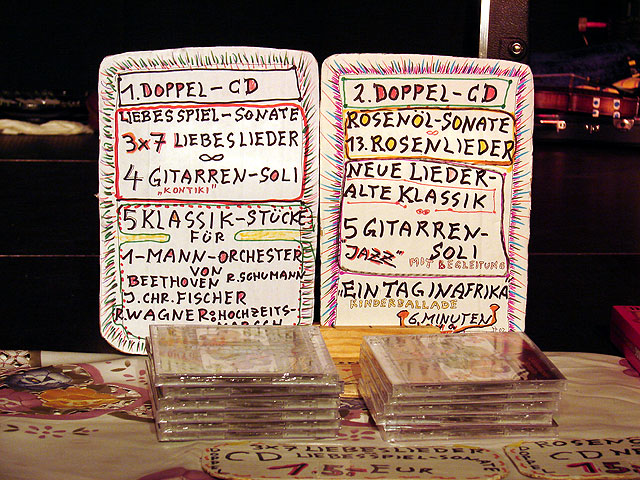 1. DOPPEL-CD
LIEBESSPIEL-SONATE
3x7 LIEBESLIEDER
∞
4 GITARREN-SOLI
"KONTIKI"
5 KLASSIK-STÜCKE
FÜR
1-MANN-ORCHESTER
VON
BEETHOVEN R. SCHUMANN
J. CHR. FISCHER
R. WAGNER: HOCHZEITS-
MARSCH
2. DOPPEL-CD
ROSENÖL-SONATE
∞
13. ROSENLIEDER
NEUE LIEDER-
ALTE KLASSIK
5 GITARREN-
SOLI
"JAZZ" MIT BEGLEITUNG
"EIN TAG IN AFRIKA"
KINDERBALLADE
6. MINUTEN
3x7 LIEBESLIEDER
CD LIEBESSPIEL-SON
15,- EUR
ROSENÖ
CD N
15